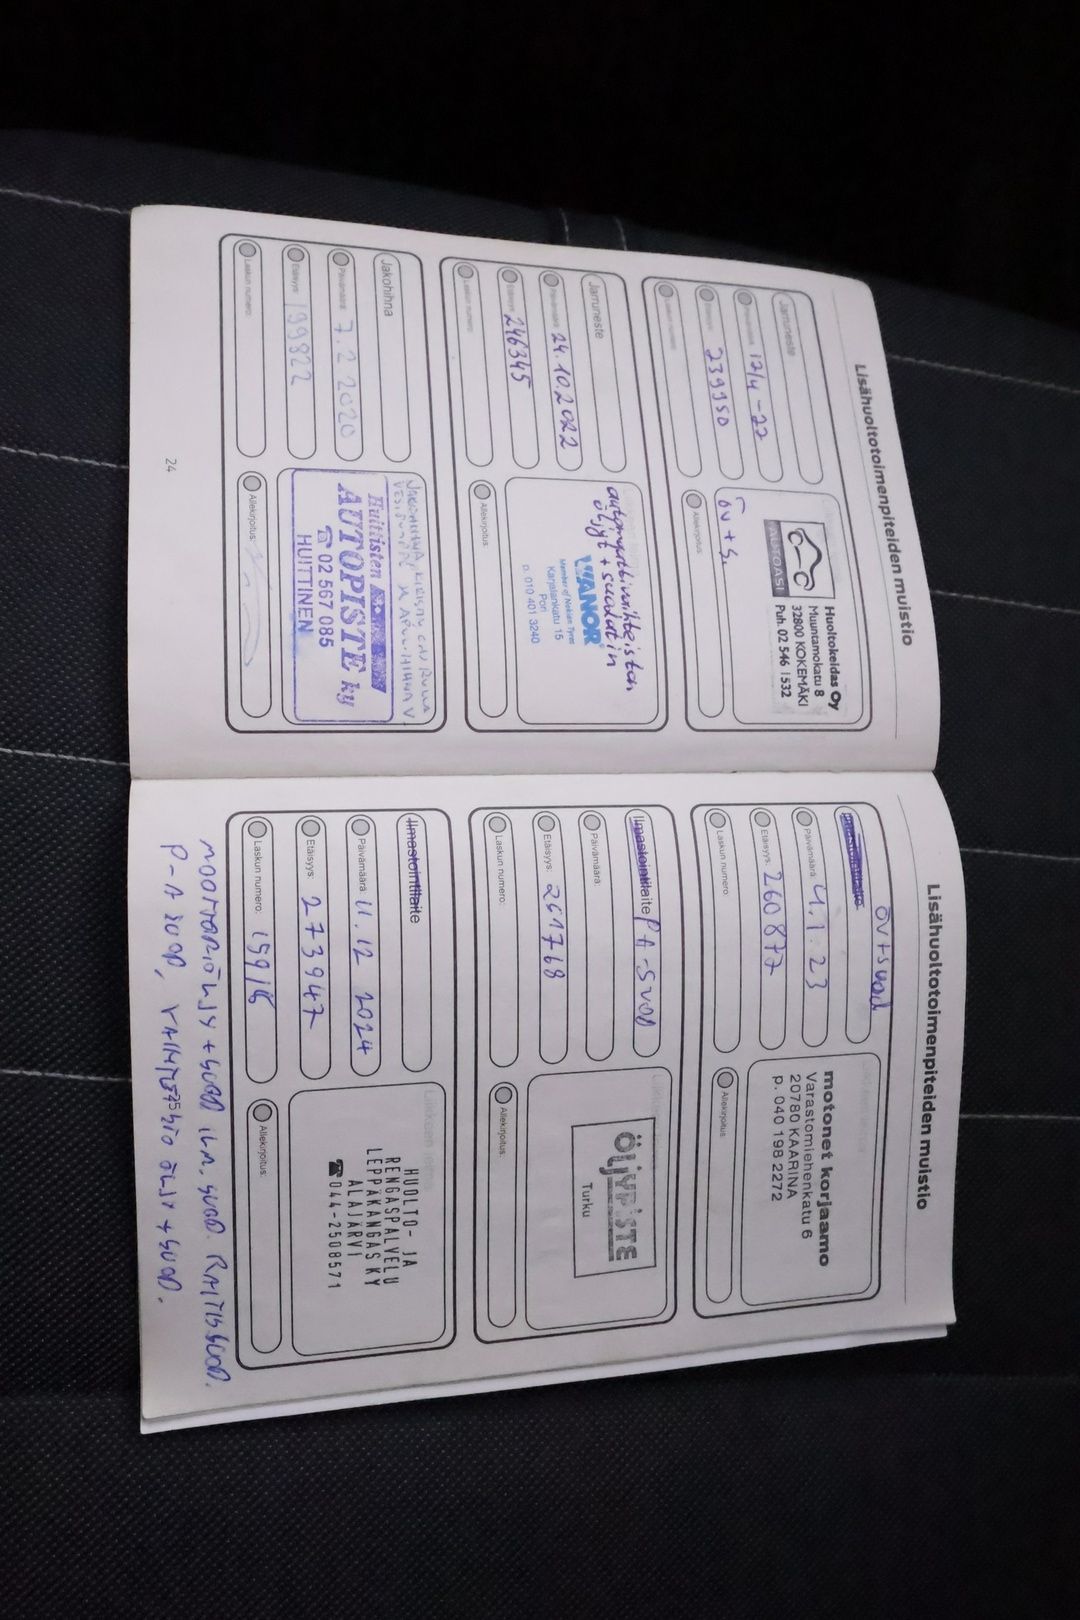 Lisähuoltotoimenpiteiden muistio
Jarruneste
Päivämäärä: 12/4-22
Etäisyys: 239950
Laskun numero:
Huoltokeidas Oy
Muuntamokatu 8
32800 KOKEMÄKI
Puh. 02 546 1532
AUTOASI
öv + s.
Allekirjoitus:
Jarruneste
Päivämäärä: 24.10.2022
Etäisyys: 246345
Laskun numero:
automaattivaihteiston
öljyt + suodatin
VIANOR
Member of Nokian Tyres
Karjalankatu 15
Pori
p. 010 401 3240
Allekirjoitus:
Jakohihna
Päivämäärä: 7.2.2020
Etäisyys: 199822
Laskun numero:
JAKOHIHNA, KIRISIN
VESIPUMPPU JA APUL.HIHNA
Huittisten
AUTOPISTE ky
☎ 02 567 085
HUITTINEN
Allekirjoitus:
24
Lisähuoltotoimenpiteiden muistio
öv+suod
Päivämäärä: 4.1.23
Etäisyys: 260877
Laskun numero:
motonet korjaamo
Varastomiehenkatu 6
20780 KAARINA
p. 040 198 2272
Allekirjoitus:
Ilmastointilaite PA-SUOD
Päivämäärä:
Etäisyys: 261768
Laskun numero:
ÖLJYPISTE
Turku
Allekirjoitus:
Ilmastointilaite
Päivämäärä: 11.12 2024
Etäisyys: 273947
Laskun numero: 15916
Liikkeen
HUOLTO- JA
RENGASPALVELU
LEPPÄKANGAS KY
ALAJÄRVI
☎044-2508571
Allekirjoitus:
MOOTTORIÖLJY+SUOD ILM.SUOD. RAITISSUOD.
P-A SUOD, VAIHTEISTO ÖLJY+SUOD.
25